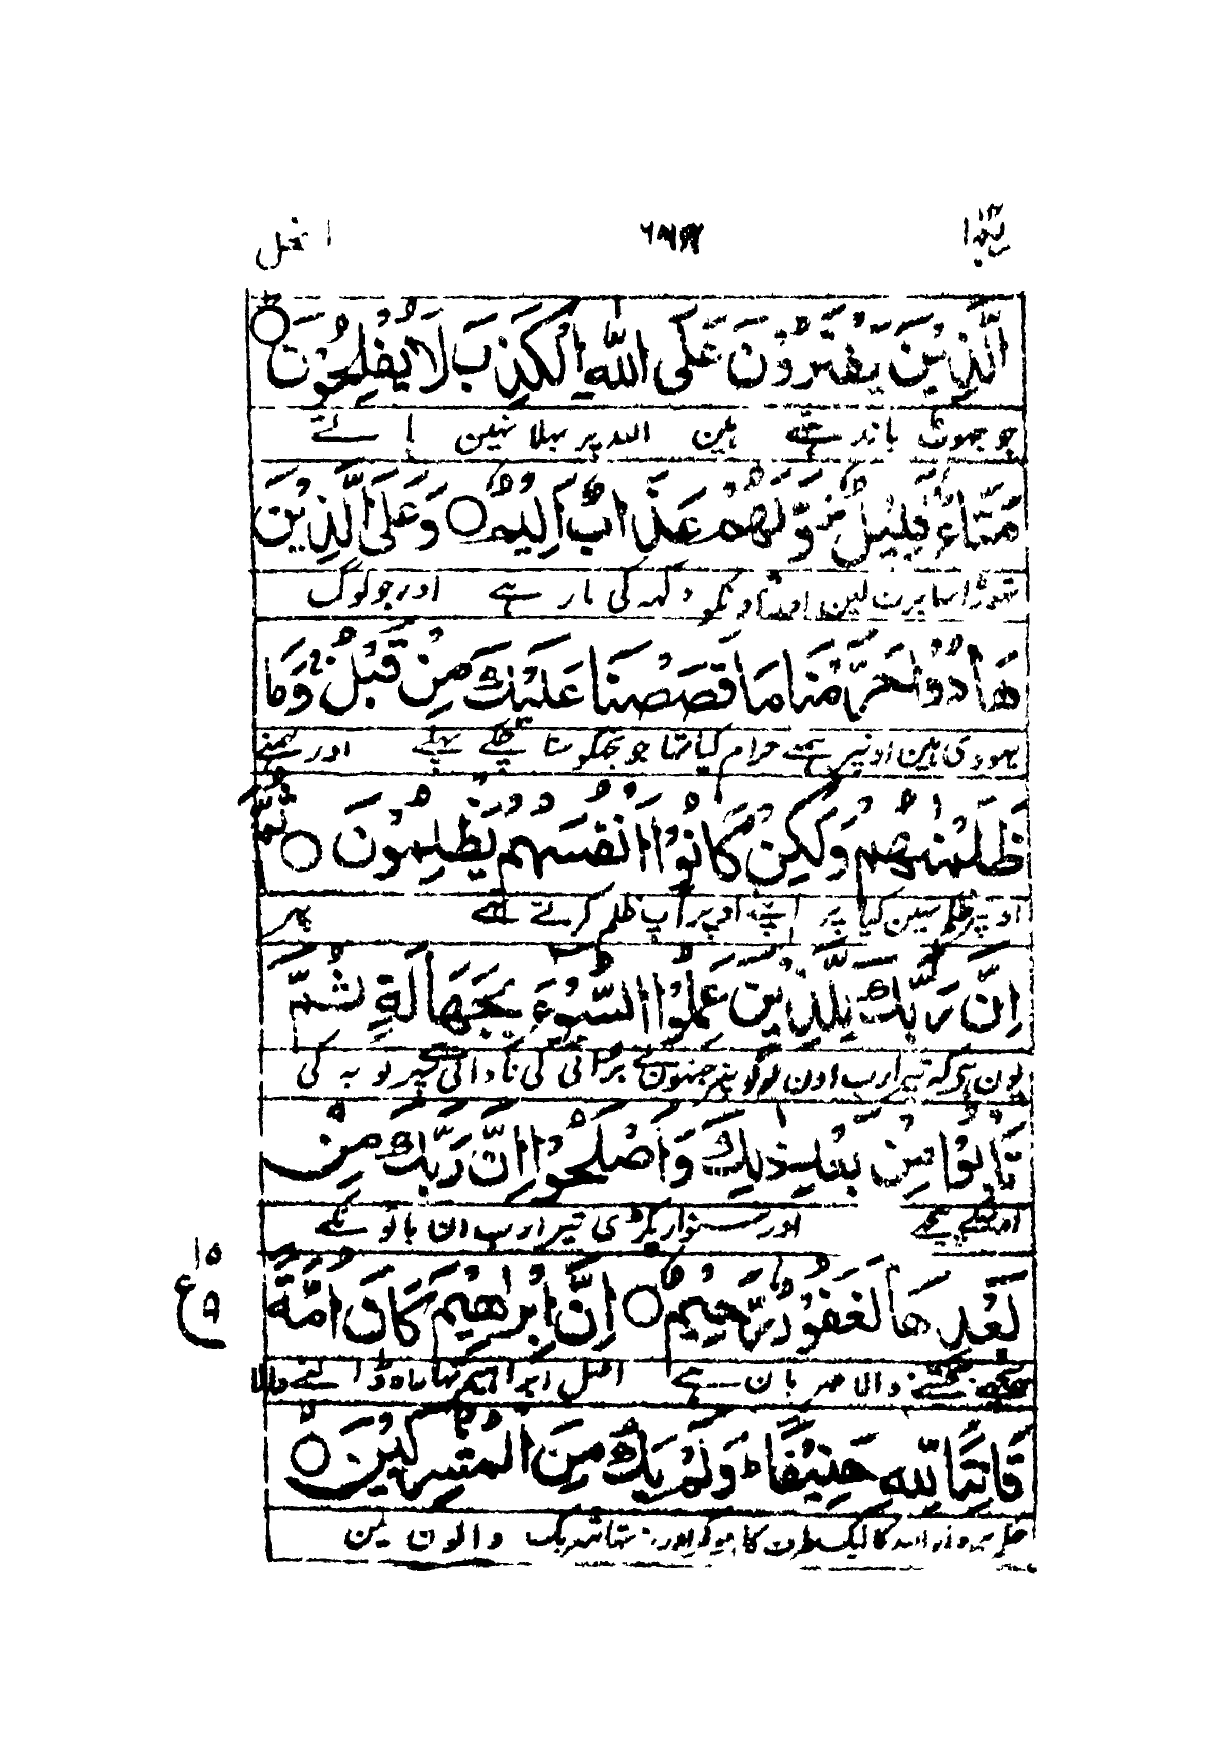 ربما النحل
الَّذِيْنَ يَفْتَرُوْنَ عَلَى اللّٰهِ الْكَذِبَ لَا يُفْلِحُوْنَ ○
جو جھوٹ باندھتے ہین اللہ پر بہلا نہین پاتے
مَتَاعٌ قَلِيْلٌ وَّلَهُمْ عَذَابٌ اَلِيْمٌ ○ وَعَلَى الَّذِيْنَ
تھوڑا سا برت لین اور اونکو دکہہ کی مار ہے اور جو لوگ
هَادُوْا حَرَّمْنَا مَا قَصَصْنَا عَلَيْكَ مِنْ قَبْلُ وَمَا
یہودی ہین اونپر ہمنے حرام کیا تہا جو تجھکو سنا چکے پہلے اور ہمنے
ظَلَمْنٰهُمْ وَلٰكِنْ كَانُوْا اَنْفُسَهُمْ يَظْلِمُوْنَ ○ ثُمَّ
اونپر ظلم نہین کیا پر اپنے اوپر آپ ظلم کرتے تھے پھر
اِنَّ رَبَّكَ لِلَّذِيْنَ عَمِلُوا السُّوْٓءَ بِجَهَالَةٍ ثُمَّ
یون ہے کہ تیرا رب اون لوگونپر جنہون نے برائی کی نادانی سے پھر توبہ کی
تَابُوْا مِنْ بَعْدِ ذٰلِكَ وَاَصْلَحُوْا اِنَّ رَبَّكَ مِنْ
اوسکے پیچھے اور سنوار پکڑی تیرا رب ان باتونکے
۱۵
ع
۹
بَعْدِهَا لَغَفُوْرٌ رَّحِيْمٌ ○ اِنَّ اِبْرٰهِيْمَ كَانَ اُمَّةً
پیچھے بخشنے والا مہربان ہے اصل ابراہیم تہا راہ ڈالنے والا
قَانِتًا لِّلّٰهِ حَنِيْفًا ؕ وَلَمْ يَكُ مِنَ الْمُشْرِكِيْنَ ○
حکم بردار اللہ کا ایک طرف کا ہوکر اور نہ تہا شریک والون مین